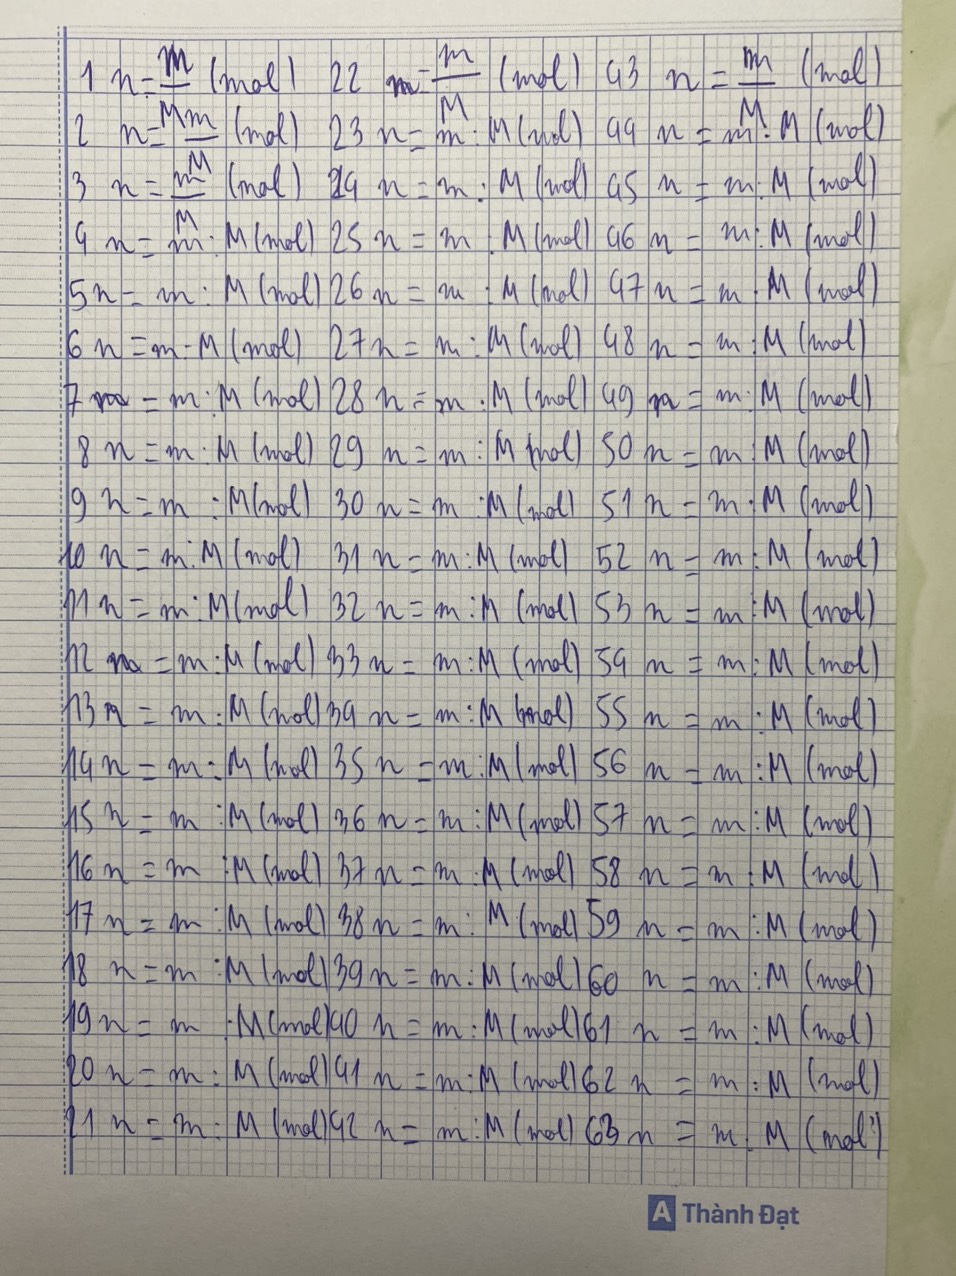 1 n = m/M (mol) 22 n = m/M (mol) 43 n = m/M (mol)
2 n = m/M (mol) 23 n = m : M (mol) 44 n = m : M (mol)
3 n = m/M (mol) 24 n = m : M (mol) 45 n = m : M (mol)
4 n = m : M (mol) 25 n = m : M (mol) 46 n = m : M (mol)
5 n = m : M (mol) 26 n = m : M (mol) 47 n = m : M (mol)
6 n = m : M (mol) 27 n = m : M (mol) 48 n = m : M (mol)
7 n = m : M (mol) 28 n = m : M (mol) 49 n = m : M (mol)
8 n = m : M (mol) 29 n = m : M (mol) 50 n = m : M (mol)
9 n = m : M (mol) 30 n = m : M (mol) 51 n = m : M (mol)
10 n = m : M (mol) 31 n = m : M (mol) 52 n = m : M (mol)
11 n = m : M (mol) 32 n = m : M (mol) 53 n = m : M (mol)
12 n = m : M (mol) 33 n = m : M (mol) 54 n = m : M (mol)
13 n = m : M (mol) 34 n = m : M (mol) 55 n = m : M (mol)
14 n = m : M (mol) 35 n = m : M (mol) 56 n = m : M (mol)
15 n = m : M (mol) 36 n = m : M (mol) 57 n = m : M (mol)
16 n = m : M (mol) 37 n = m : M (mol) 58 n = m : M (mol)
17 n = m : M (mol) 38 n = m : M (mol) 59 n = m : M (mol)
18 n = m : M (mol) 39 n = m : M (mol) 60 n = m : M (mol)
19 n = m : M (mol) 40 n = m : M (mol) 61 n = m : M (mol)
20 n = m : M (mol) 41 n = m : M (mol) 62 n = m : M (mol)
21 n = m : M (mol) 42 n = m : M (mol) 63 n = m : M (mol)
A Thành Đạt